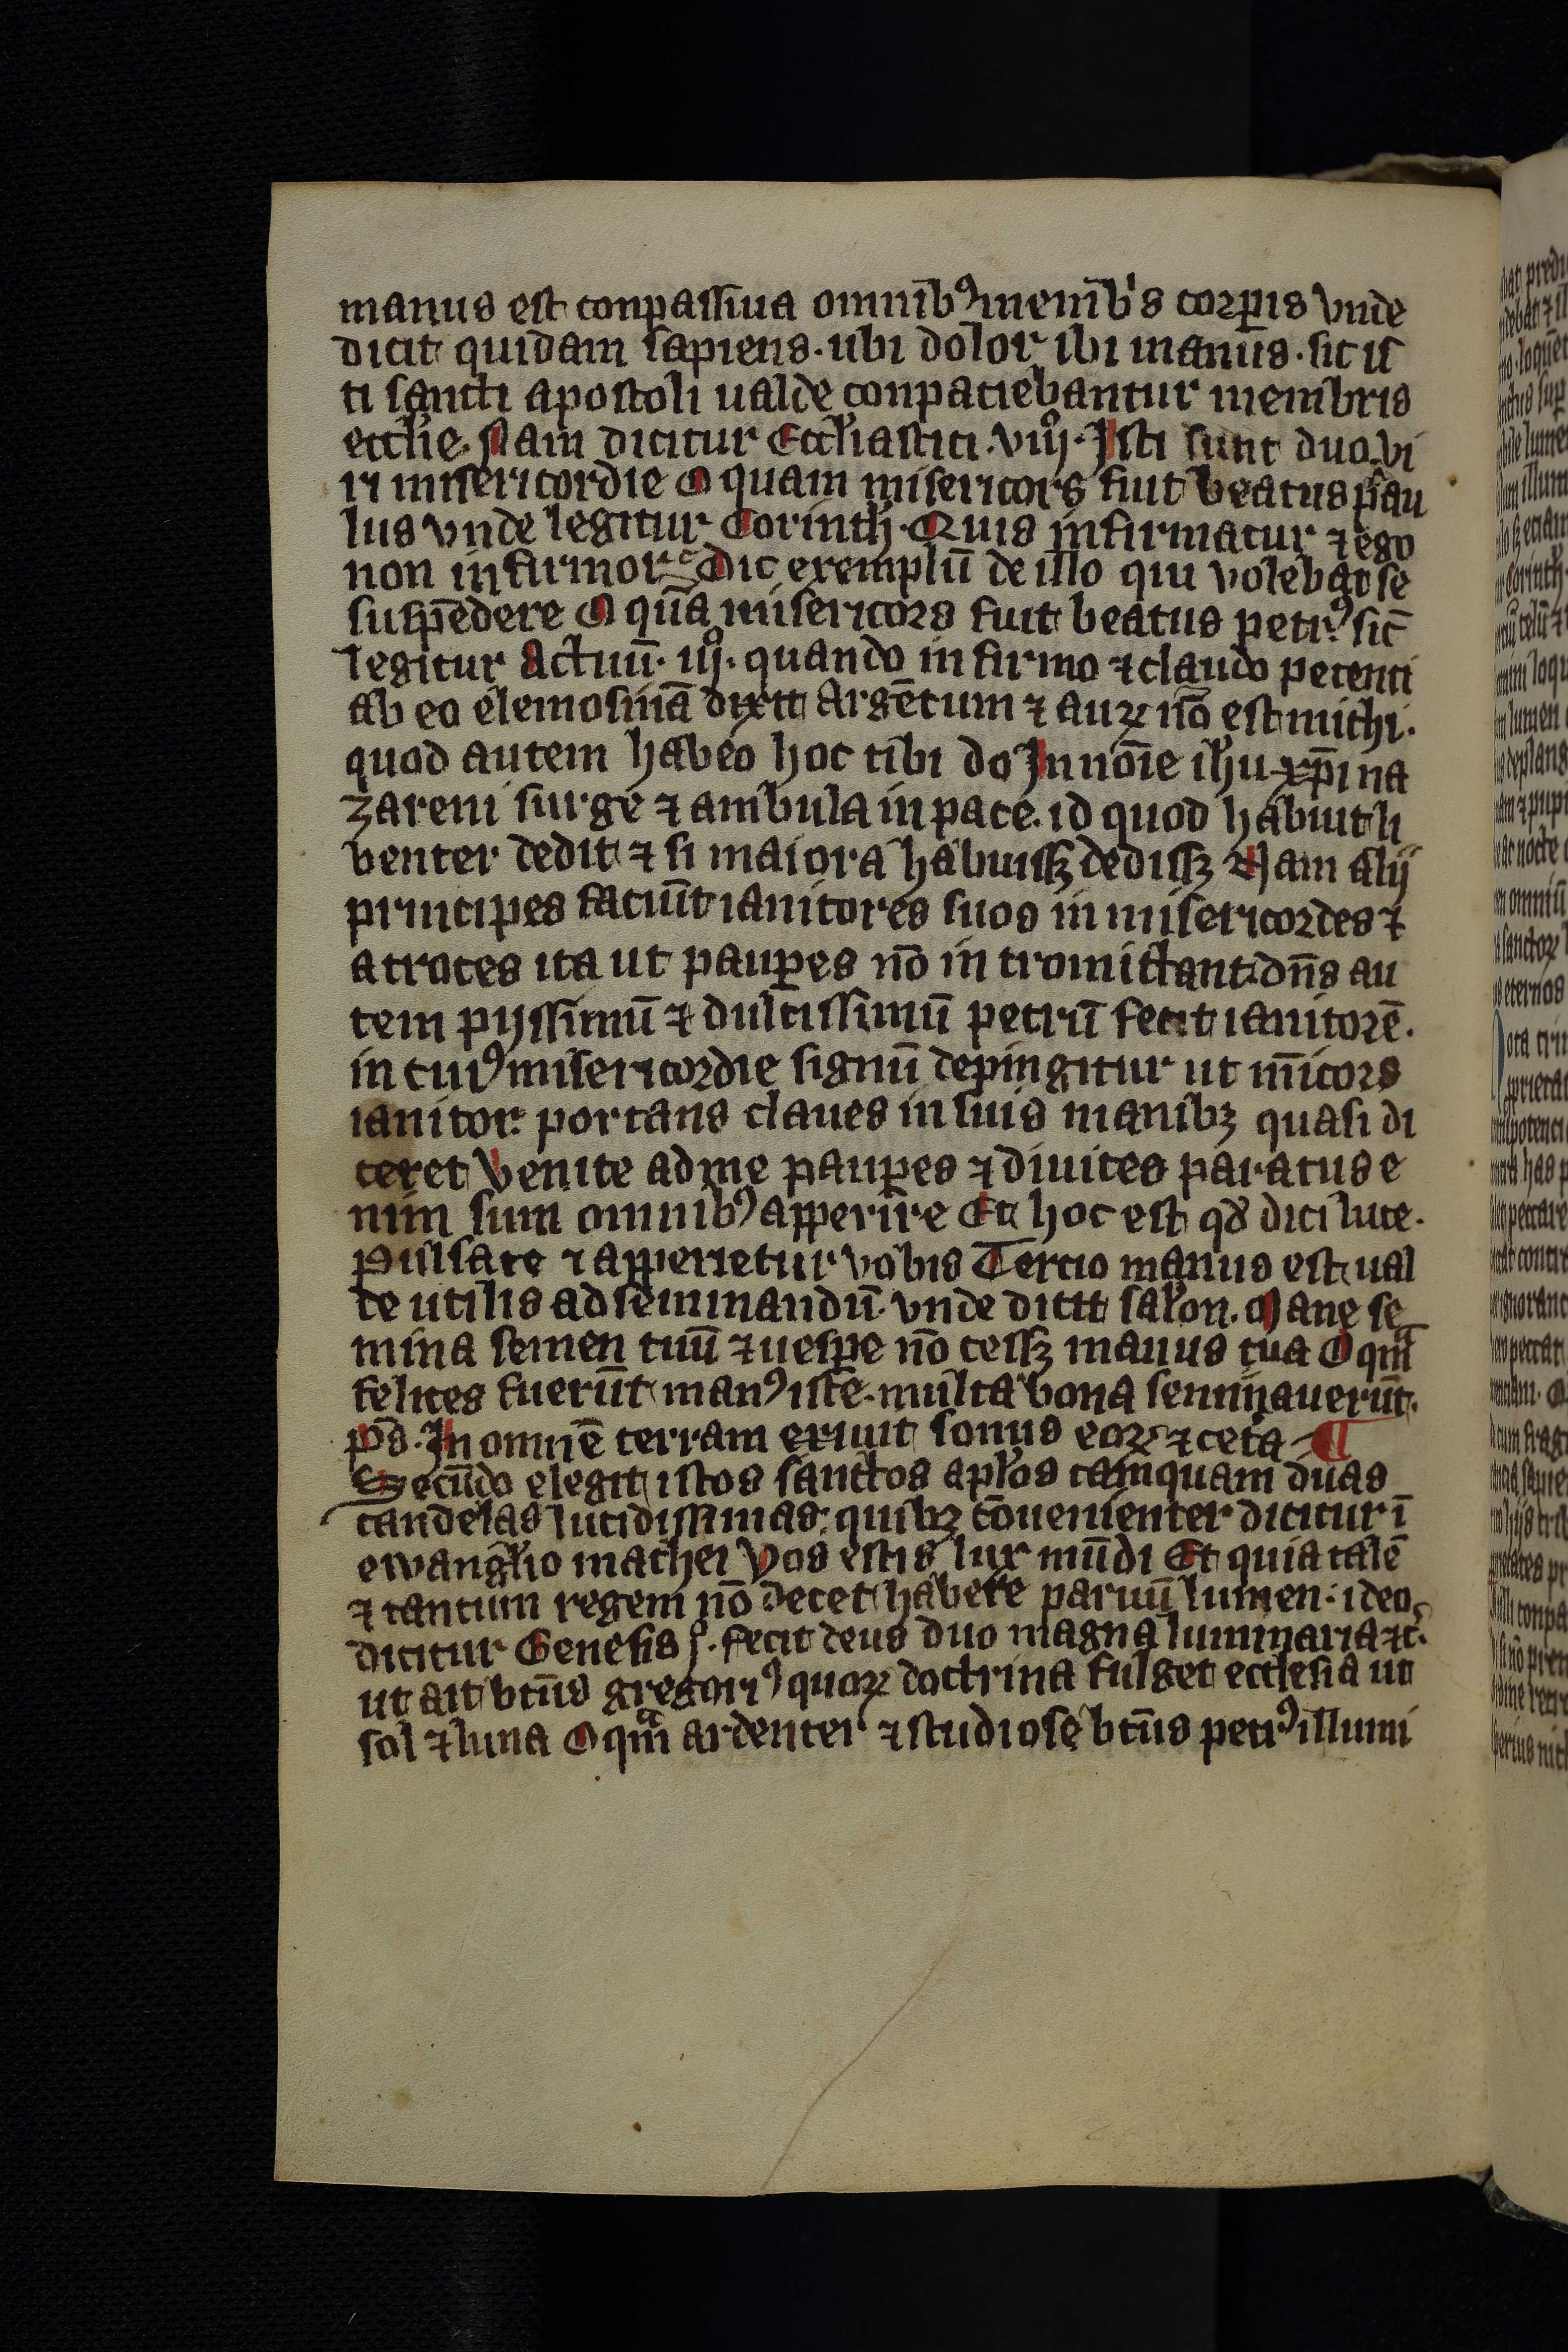 manus est conpassiua omnibꝰ menb̄ͥs corꝑis vnde
dicit quidam sapiens. ubi dolor ibi manus. sic is
ti sancti apostoli ualde conpaciebantur membris
eccl̄ie. Nam dicitur Eccl̄iastici. viiijͦ. Isti sunt duo vi
ri misericordie O quam misericors fuit beatus pau
lus vnde legitur Corinth̄. Quis infirmatur ⁊ ego
non infirmor Dic exemplū de illo qui volebat se
suspēdere O quā misericors fuit beatus petrꝰ sic̄
legitur Actuū. iijͦ. quando infirmo ⁊ claudo petenti
ab eo elemosinā dixit Argētum ⁊ auꝝ nō est michi.
quod autem habeo hoc tibi do In noīe ih̄u xp̄i na
zareni surge ⁊ ambula in pace. id quod habuit li
benter dedit ⁊ si maiora habuissꝫ dedissꝫ Nam alij
principes faciūt ianitores suos inmisericordes ⁊
atroces ita ut pauꝑes nō intromittant. dn̄s au
tem pijssimū ⁊ dulcissimū petrū fecit ianitorē.
in cuiꝰ misericordie signū depingitur ut mīcors
ianitor. portans claues in suis manibꝫ quasi di
ceret Venite ad me pauꝑes ⁊ diuites paratus e
nim sum omnibꝰ apperire Et hoc est qd̄ dici luce.
Pulsate ⁊ apperietur vobis Tercio manus est ual
de utilis ad seminandū. vnde dicit sal̄on. Mane se
mina semen tuū ⁊ uesꝑe nō cessꝫ manus tua O qᷓm
felices fuerūt manꝰ iste. multa bona seminauerūt.
p̄s. In omnē terram exiuit sonus eoꝝ ⁊ cet̄a ¶
Secūdo elegit istos sanctos apl̄os tamquam duas
candelas lucidissimas. quibꝫ cōuenienter dicitur ī
ewangl̄io mathei Vos estis lux mūdi Et quia talē
⁊ tantum regem nō decet habere paruū lumen. ideo
dicitur Genesis jͦ. fecit deus duo magna luminaria ⁊c̄.
ut ait bt̄us gregoriꝰ quoꝝ doctrina fulget ecclesia ut
sol ⁊ luna O qᷓm ardenter ⁊ studiose bt̄us petrꝰ illumi